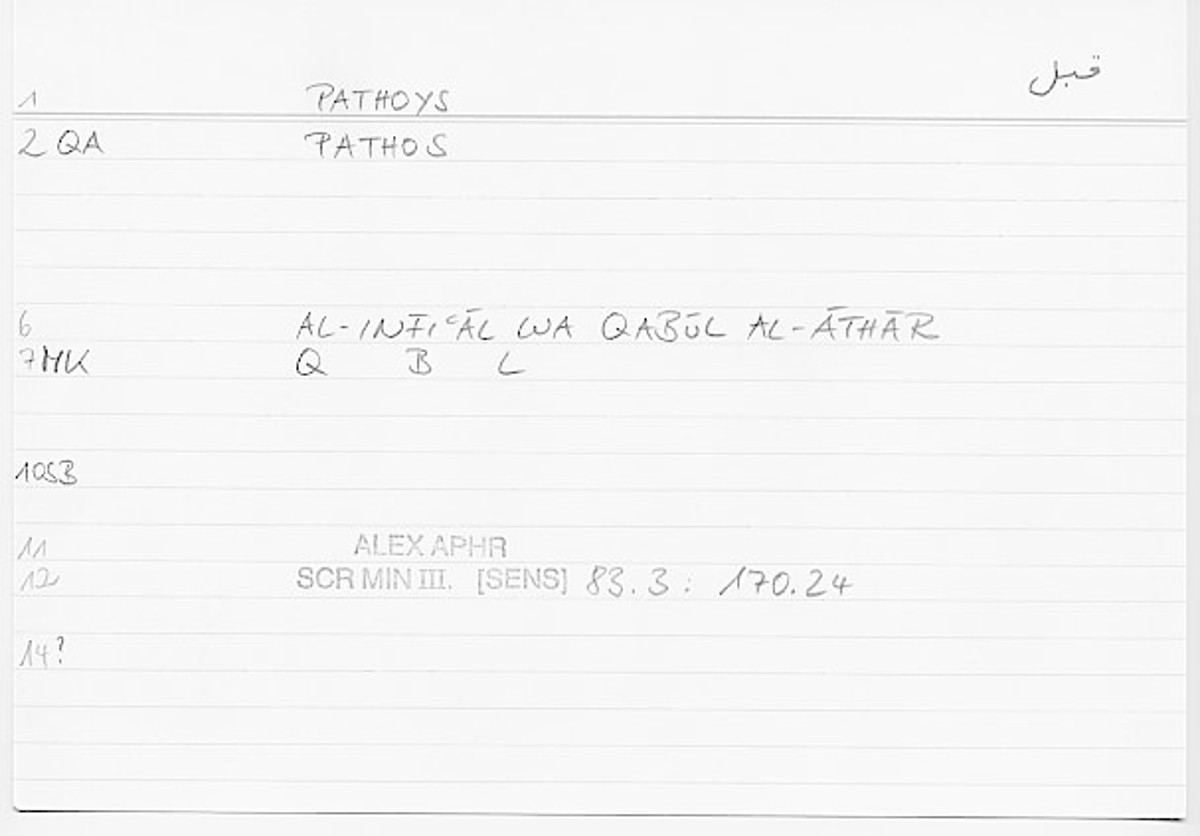 قبل
1 PATHOYS
2 QA PATHOS
6 AL-INFIʿĀL WA QABŪL AL-ĀTHĀR
7 MK Q B L
10SB
11 ALEX APHR
12 SCR MIN III. [SENS] 83.3: 170.24
14?